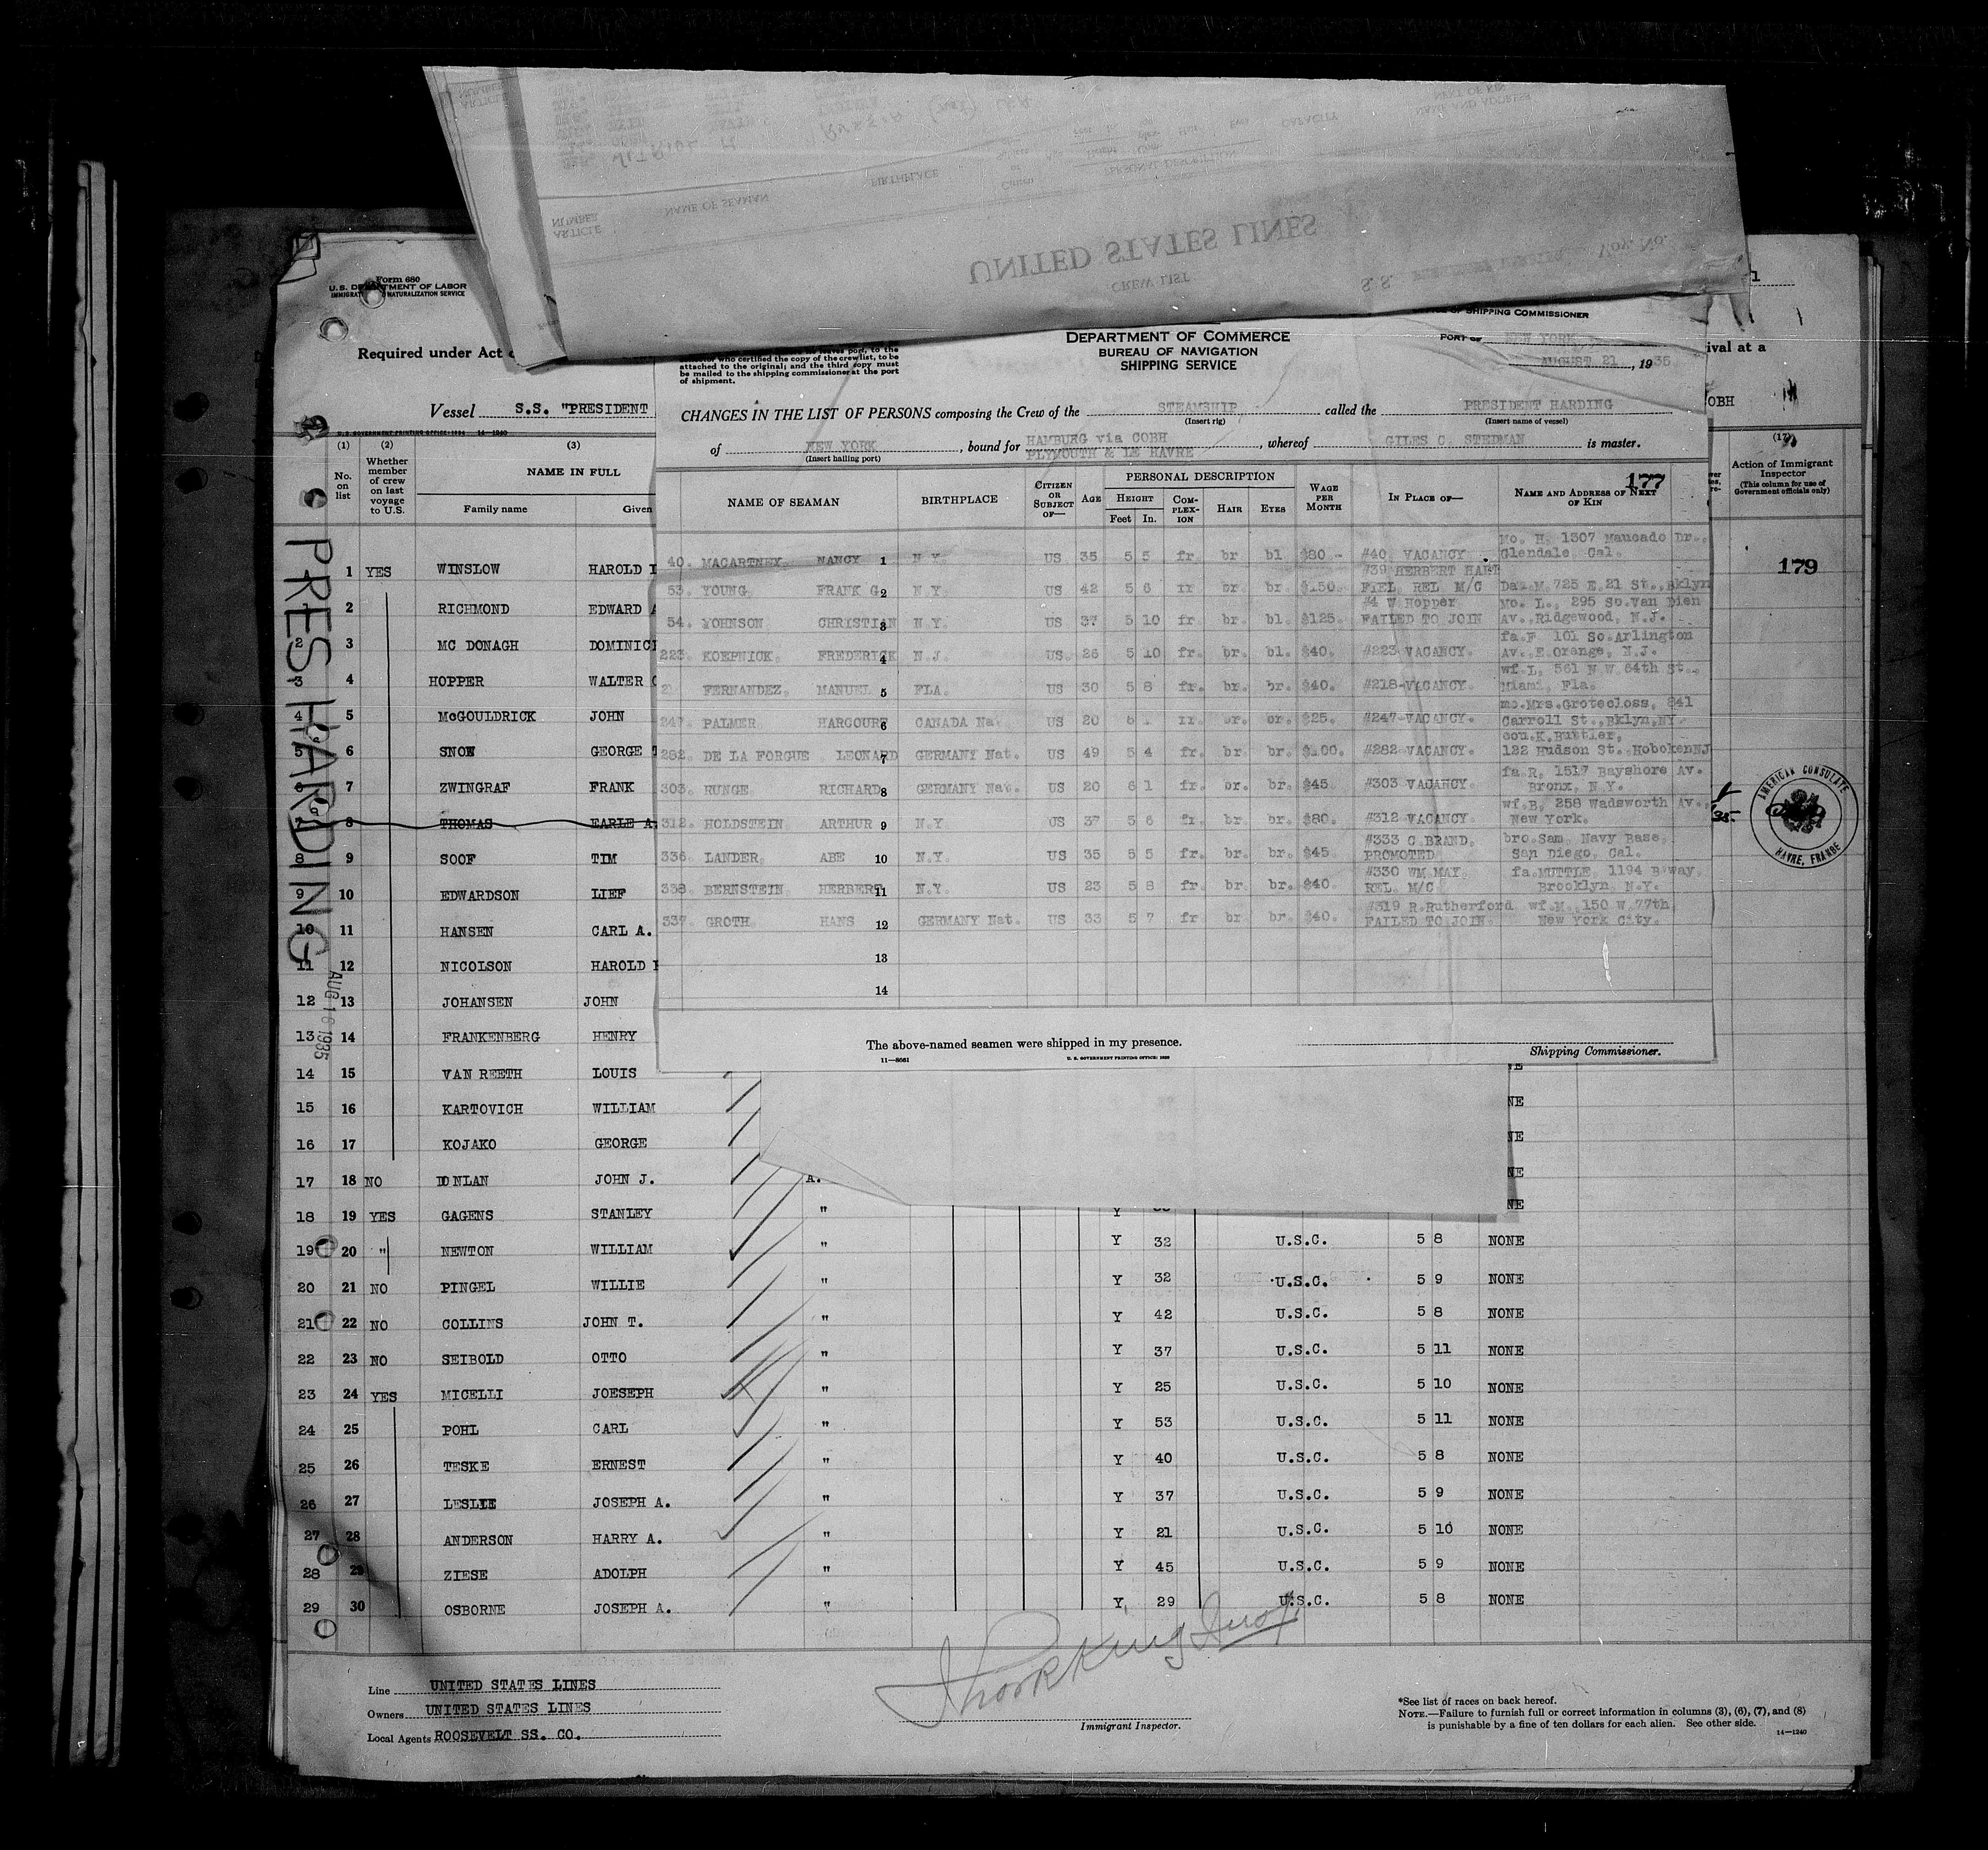 UNITED STATES LINES
CREW LIST
S.S.
Voy. No.
NUMBER
ARTICLE
NAME OF SEAMAN
BIRTHPLACE
PERSONAL DESCRIPTION
CAPACITY
NAME AND ADDRESS
NEXT OF KIN
RUSSIA (nat) USA
Form 680
U.S. DEPARTMENT OF LABOR
IMMIGRAT NATURALIZATION SERVICE
Required under Act
ival at a
Vessel S.S. "PRESIDENT
OBH
U.S. GOVERNMENT PRINTING OFFICE: 1934 14—1240
who certified the copy of the crew list, to be
attached to the original; and the third copy must
be mailed to the shipping commissioner at the port
of shipment.
DEPARTMENT OF COMMERCE
BUREAU OF NAVIGATION
SHIPPING SERVICE
OF SHIPPING COMMISSIONER
PORT OF NEW YORK
AUGUST 21, 1935
CHANGES IN THE LIST OF PERSONS composing the Crew of the STEAMSHIP called the PRESIDENT HARDING
(Insert rig) (Insert name of vessel)
of NEW YORK, bound for HAMBURG via COBH PLYMOUTH & LE HAVRE, whereof GILES C. STEDMAN is master.
(Insert hailing port)
177
NAME OF SEAMAN BIRTHPLACE CITIZEN OR SUBJECT OF— AGE PERSONAL DESCRIPTION HEIGHT Feet In. COMPLEXION HAIR EYES WAGE PER MONTH IN PLACE OF— NAME AND ADDRESS OF NEXT OF KIN
40. MACARTNEY NANCY 1 N.Y. US 35 5 5 fr. br bl $80 - #40 VACANCY Mo. H. 1307 Maucado Dr., Glendale Cal.
53. YOUNG FRANK G. 2 N.Y. US 42 5 6 br. br. $150. #39 HERBERT HART REL M/C 725 E.21 St., Bklyn
54. YOHNSON CHRISTIAN 3 N.Y. US 37 5 10 fr. br. bl. $125. #4 W Hopper FAILED TO JOIN Mo. L., 295 So.Van Dien Av., Ridgewood, N.J.
223. KOEPNICK, FREDERICK 4 N.J. US. 26 5 10 fr. br. bl. $40. #223 VACANCY. fa.F. 101 So.Arlington Av., E.Orange, N.J.
FERNANDEZ, MANUEL 5 FLA. US 30 5 8 fr. br. br. $40. #218-VACANCY. wf.L. 561 N.W. 64th St., Miami, Fla.
247. PALMER HARCOURT 6 CANADA Na. US 20 $25. #247-VACANCY. mo.Mrs.Grotecloss, 841 Carroll St., Bklyn,NY.
282. DE LA FORGUE LEONARD 7 GERMANY Nat. US 49 5 4 fr. br br. $100. #282 VACANCY. cou.K.Buttler, 122 Hudson St. HobokenNJ
303. RUNGE RICHARD 8 GERMANY Nat. US 20 6 1 fr. br. br. $45 #303 VACANCY. fa.R. 1517 Bayshore Av. Bronx, N.Y.
312. HOLDSTEIN ARTHUR 9 N.Y US 37 5 6 fr. br br. $80. #312 VACANCY. wf.B. 258 Wadsworth Av., New York.
336. LANDER, ABE 10 N.Y. US 35 5 5 fr. br. br. $45 #333 C.BRAND. PROMOTED bro.Sam, Navy Base, San Diego, Cal.
338. BERNSTEIN HERBERT 11 N.Y. US 23 5 8 fr. br br. $40. #330 WM MAY. REL. M/C fa.MUTTLE, 1194 B'way, Brooklyn, N.Y.
337. GROTH HANS 12 GERMANY Nat. US 33 5 7 fr br br. $40. #319 R.Rutherford FAILED TO JOIN wf.M. 150 W.77th, New York City.
13
14
The above-named seamen were shipped in my presence.
Shipping Commissioner.
11—8661 U. S. GOVERNMENT PRINTING OFFICE: 1930
(1) (2) (3) (17)
No. on list
Whether member of crew on last voyage to U.S.
NAME IN FULL
Family name Given
Action of Immigrant Inspector
(This column for use of Government officials only)
179
AMERICAN CONSULATE
HAVRE, FRANCE
PRES HARDING
AUG 16 1935
1 YES WINSLOW HAROLD
2 RICHMOND EDWARD A
2 3 MC DONAGH DOMINIC
3 4 HOPPER WALTER
4 5 McGOULDRICK JOHN
5 6 SNOW GEORGE
6 7 ZWINGRAF FRANK
7 8 THOMAS EARLE A.
8 9 SOOF TIM
9 10 EDWARDSON LIEF
10 11 HANSEN CARL A.
11 12 NICOLSON HAROLD
12 13 JOHANSEN JOHN
13 14 FRANKENBERG HENRY
14 15 VAN REETH LOUIS
15 16 KARTOVICH WILLIAM NE
16 17 KOJAKO GEORGE NE
17 18 NO DONLAN JOHN J. A. NE
18 19 YES GAGENS STANLEY " Y NE
19 20 " NEWTON WILLIAM " Y 32 U.S.C. 5 8 NONE
20 21 NO PINGEL WILLIE " Y 32 U.S.C. 5 9 NONE
21 22 NO COLLINS JOHN T. " Y 42 U.S.C. 5 8 NONE
22 23 NO SEIBOLD OTTO " Y 37 U.S.C. 5 11 NONE
23 24 YES MICELLI JOESEPH " Y 25 U.S.C. 5 10 NONE
24 25 POHL CARL " Y 53 U.S.C. 5 11 NONE
25 26 TESKE ERNEST " Y 40 U.S.C. 5 8 NONE
26 27 LESLIE JOSEPH A. " Y 37 U.S.C. 5 9 NONE
27 28 ANDERSON HARRY A. " Y 21 U.S.C. 5 10 NONE
28 29 ZIESE ADOLPH " Y 45 U.S.C. 5 9 NONE
29 30 OSBORNE JOSEPH A. " Y 29 U.S.C. 5 8 NONE
Line UNITED STATES LINES
Owners UNITED STATES LINES
Local Agents ROOSEVELT SS. CO.
Immigrant Inspector.
*See list of races on back hereof.
NOTE.—Failure to furnish full or correct information in columns (3), (6), (7), and (8)
is punishable by a fine of ten dollars for each alien. See other side.
14—1240